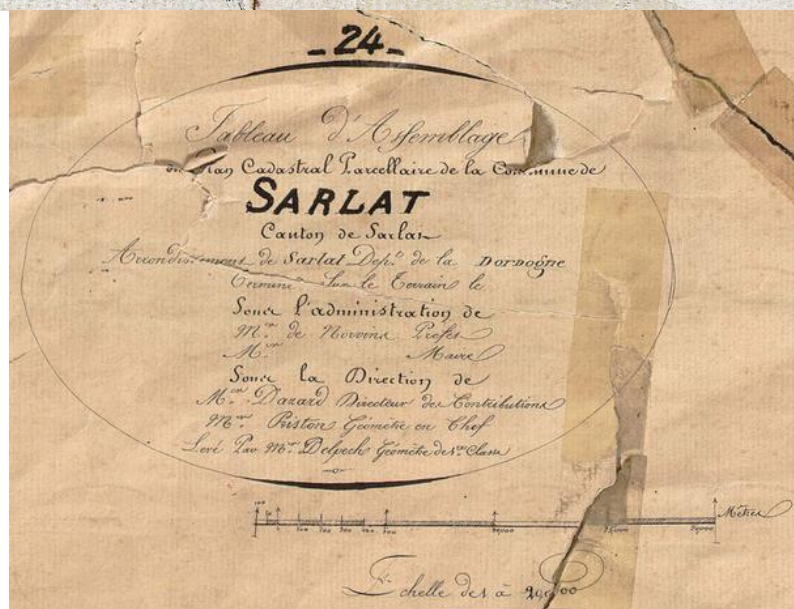 _24_
Tableau d'Assemblage
du Plan Cadastral Parcellaire de la Commune de
SARLAT
Canton de Sarlat
Arrondissement de Sarlat Dep.t de la DORDOGNE
Terminé Sur le Terrain le
Sous l'administration de
M.r de Norvins Préfet
M.r Maire
Sous la Direction de
M.r Dazard Directeur des Contributions
M.r Riston Géomètre en Chef
Levé Par M.r Delpech Géomètre de 1.re Classe
Mètres
Echelle de 1 à